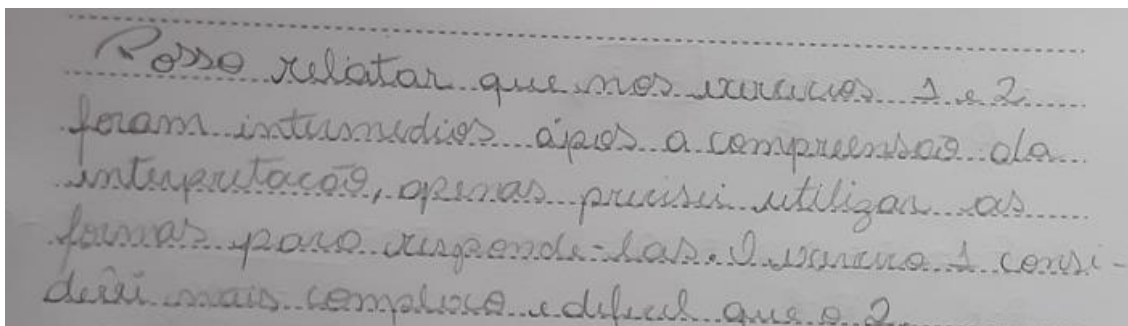 Posso relatar que nos exercicios 1 e 2
foram intermedios ápos a compreensão da
interpretacão, apenas precisei utilizar as
formas para responde-las. O exercicio 1 consi-
derei mais complexo e dificil que o 2.